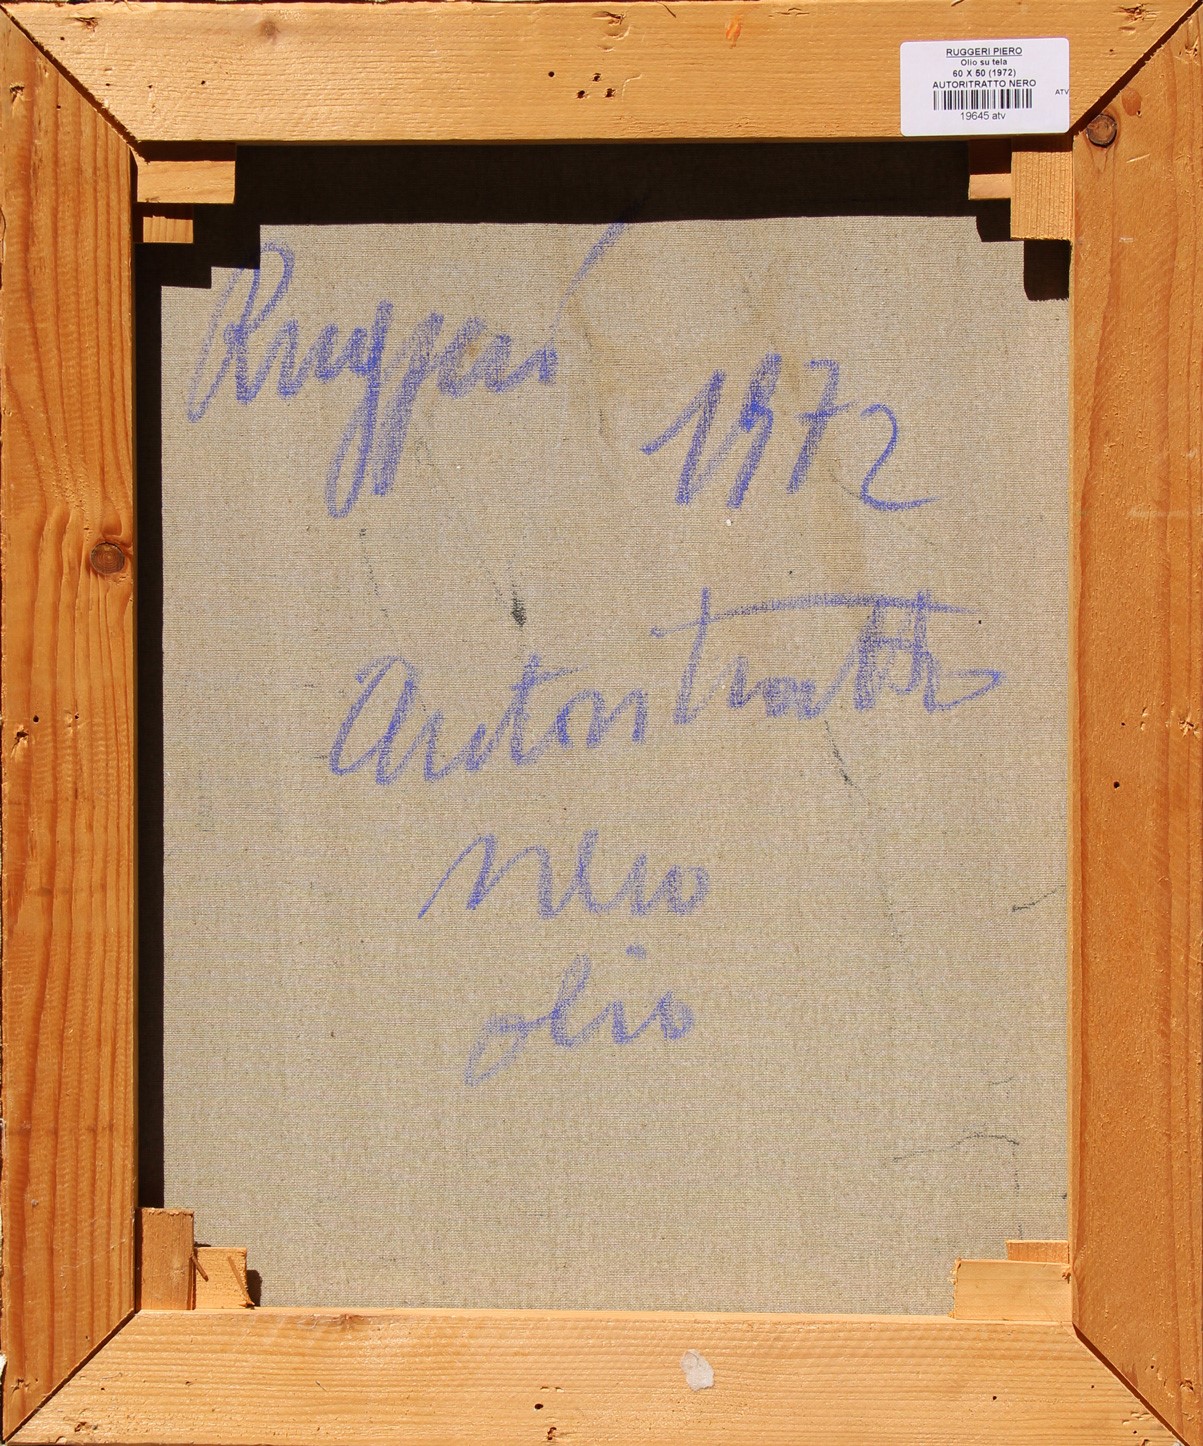 RUGGERI PIERO
Olio su tela
60 X 50 (1972)
AUTORITRATTO NERO
ATV
19645 atv
Ruggeri
1972
Autoritratto
nero
olio